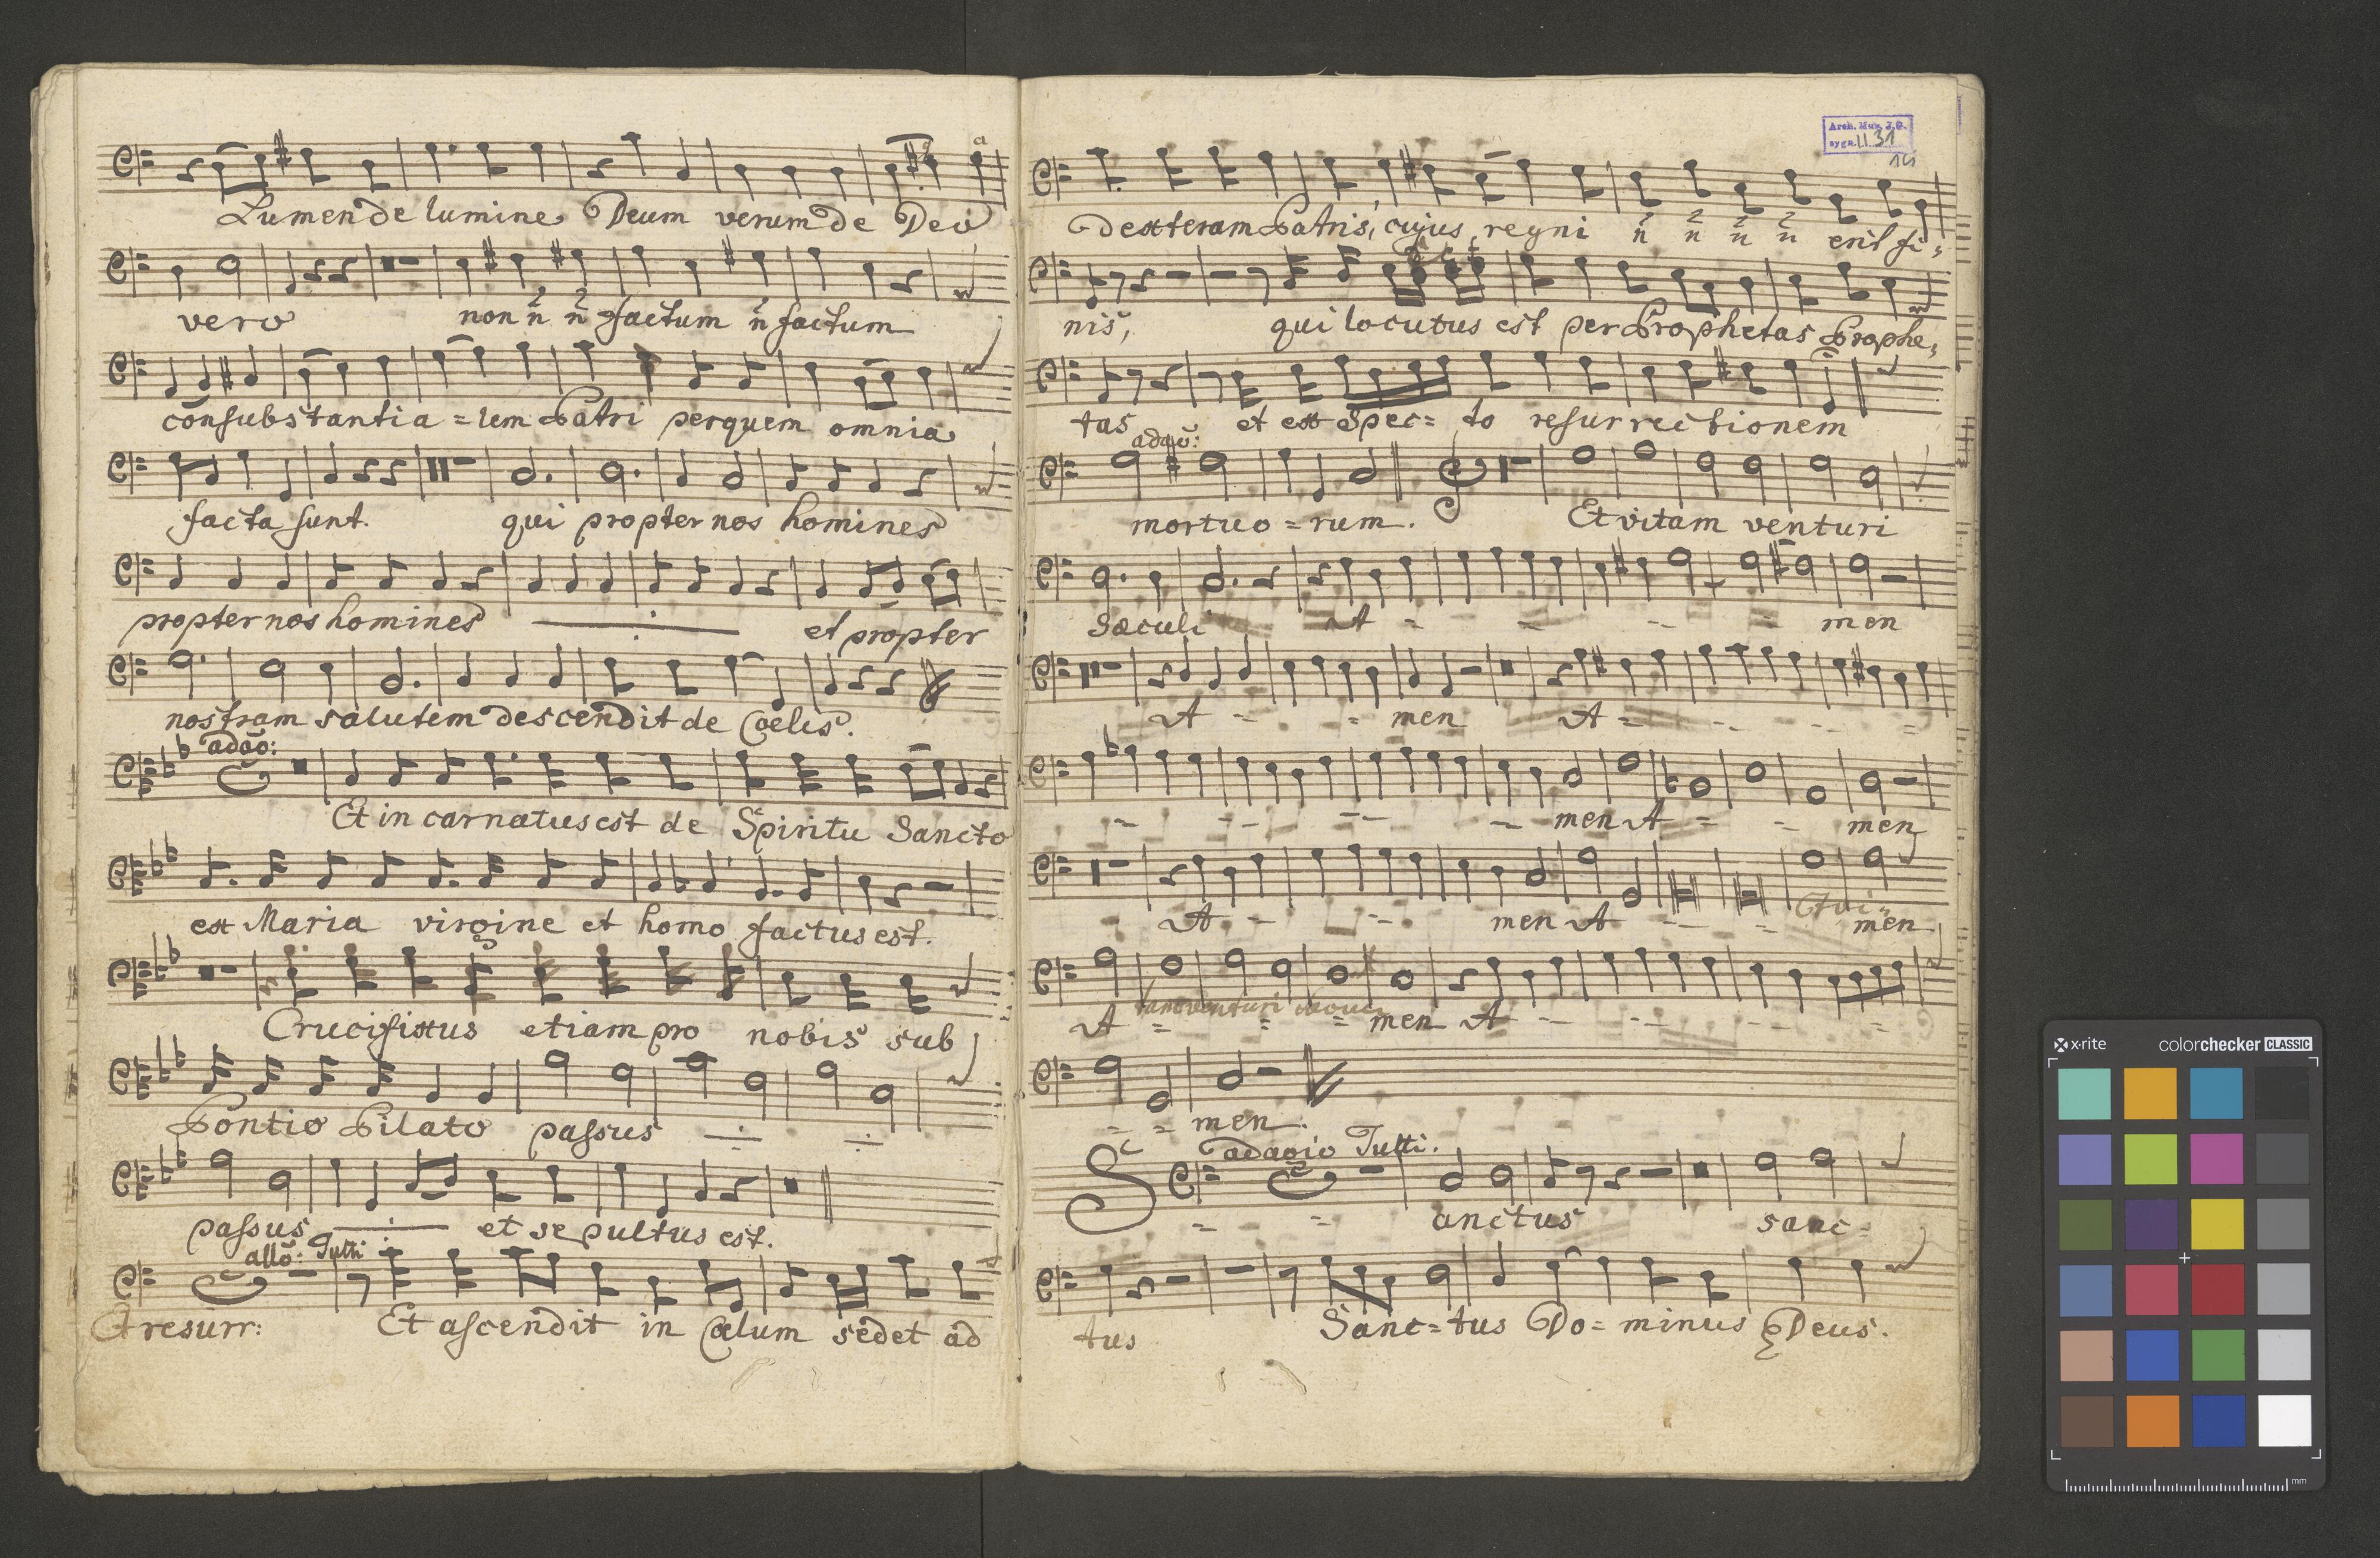 Lumen de lumine Deum verum de Deo
vero non n n factum n factum
consubstantia = lem Patri per quem omnia
facta sunt. qui propter nos homines
propter nos homines et propter
nostram salutem descendit de Cœlis.
adaō:
Et incarnatus est de Spiritu Sancto
ex Maria virgine et homo factus est.
Crucifixus etiam pro nobis sub
Pontio Pilato passus
passus et sepultus est.
allō: Tutti
Et resurr: Et ascendit in Cœlum sedet ad
Arch. Mus. J.G.
sygn. II.31
14
dexteram Patris, cujus regni n n n n erit fi=
nis, qui locutus est per Prophetas Prophe=
tas et ex Spec= to resurrectionem
adaō:
mortuo = rum. Et vitam venturi
Sæculi A - - - - men
A - - men A = - - =
- - - - men A = - men
- A - - men A - = men
A = = = men A - - - =
= = men.
adagio Tutti.
S = = anctus sanc=
tus Sanc=tus Do=minus Deus.
x·rite colorchecker CLASSIC
mm